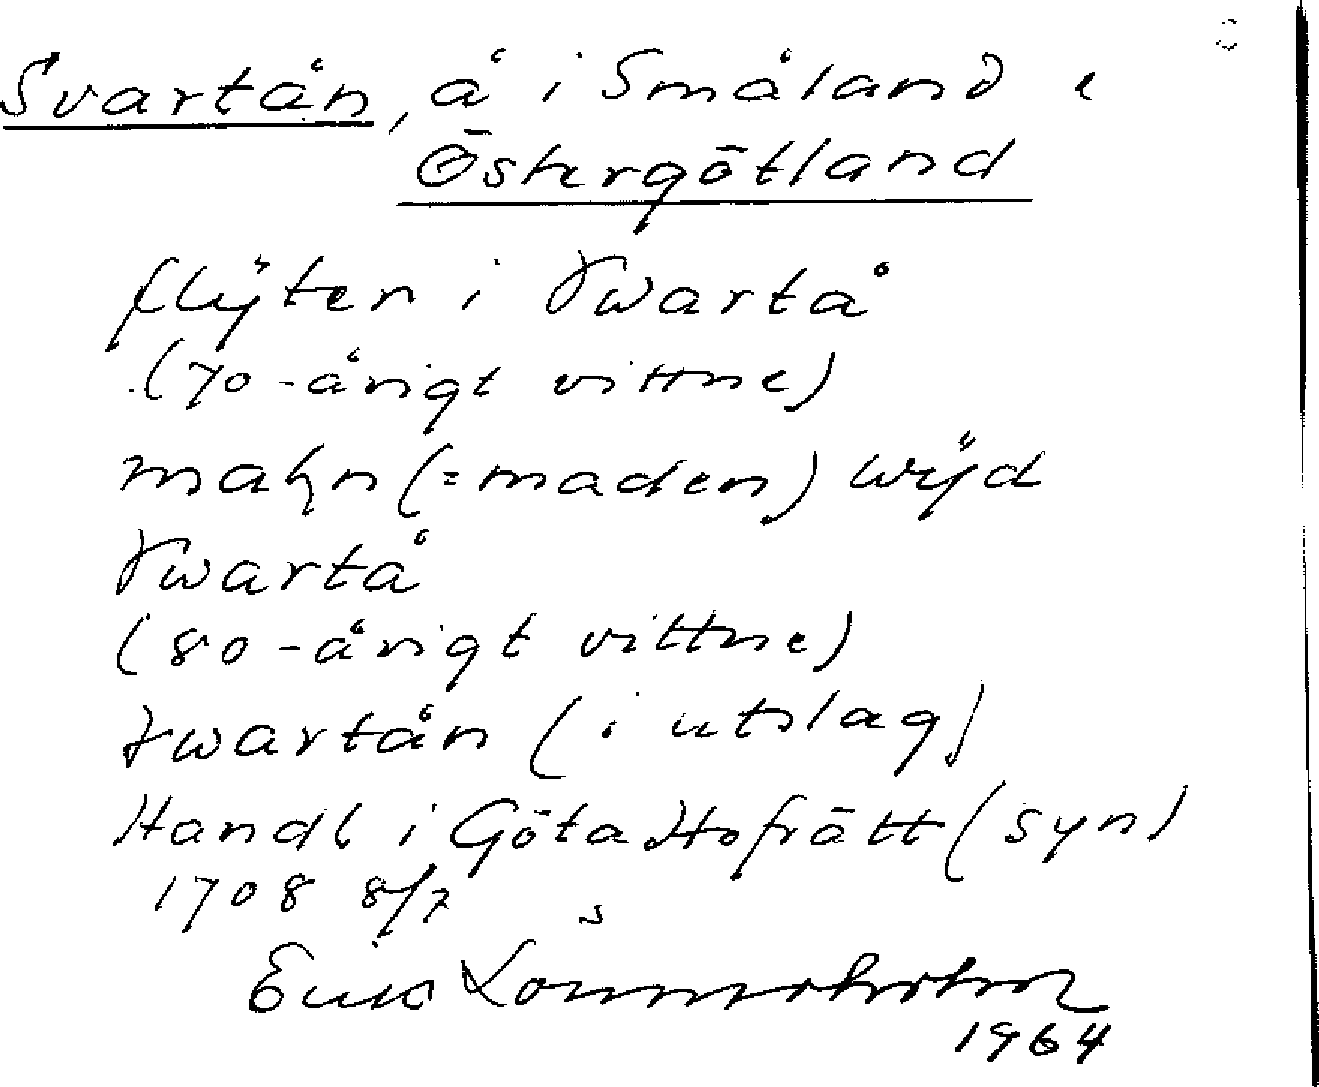 Svartån, å i Småland &
Östergötland
flÿten i Swartå
(70-årigt vittne)
mahn (=maden) wÿd
Swartå
(80-årigt vittne)
swartån (i utslag)
Handl i Göta Hofrätt (syn)
1708 8/7
Erik
1964